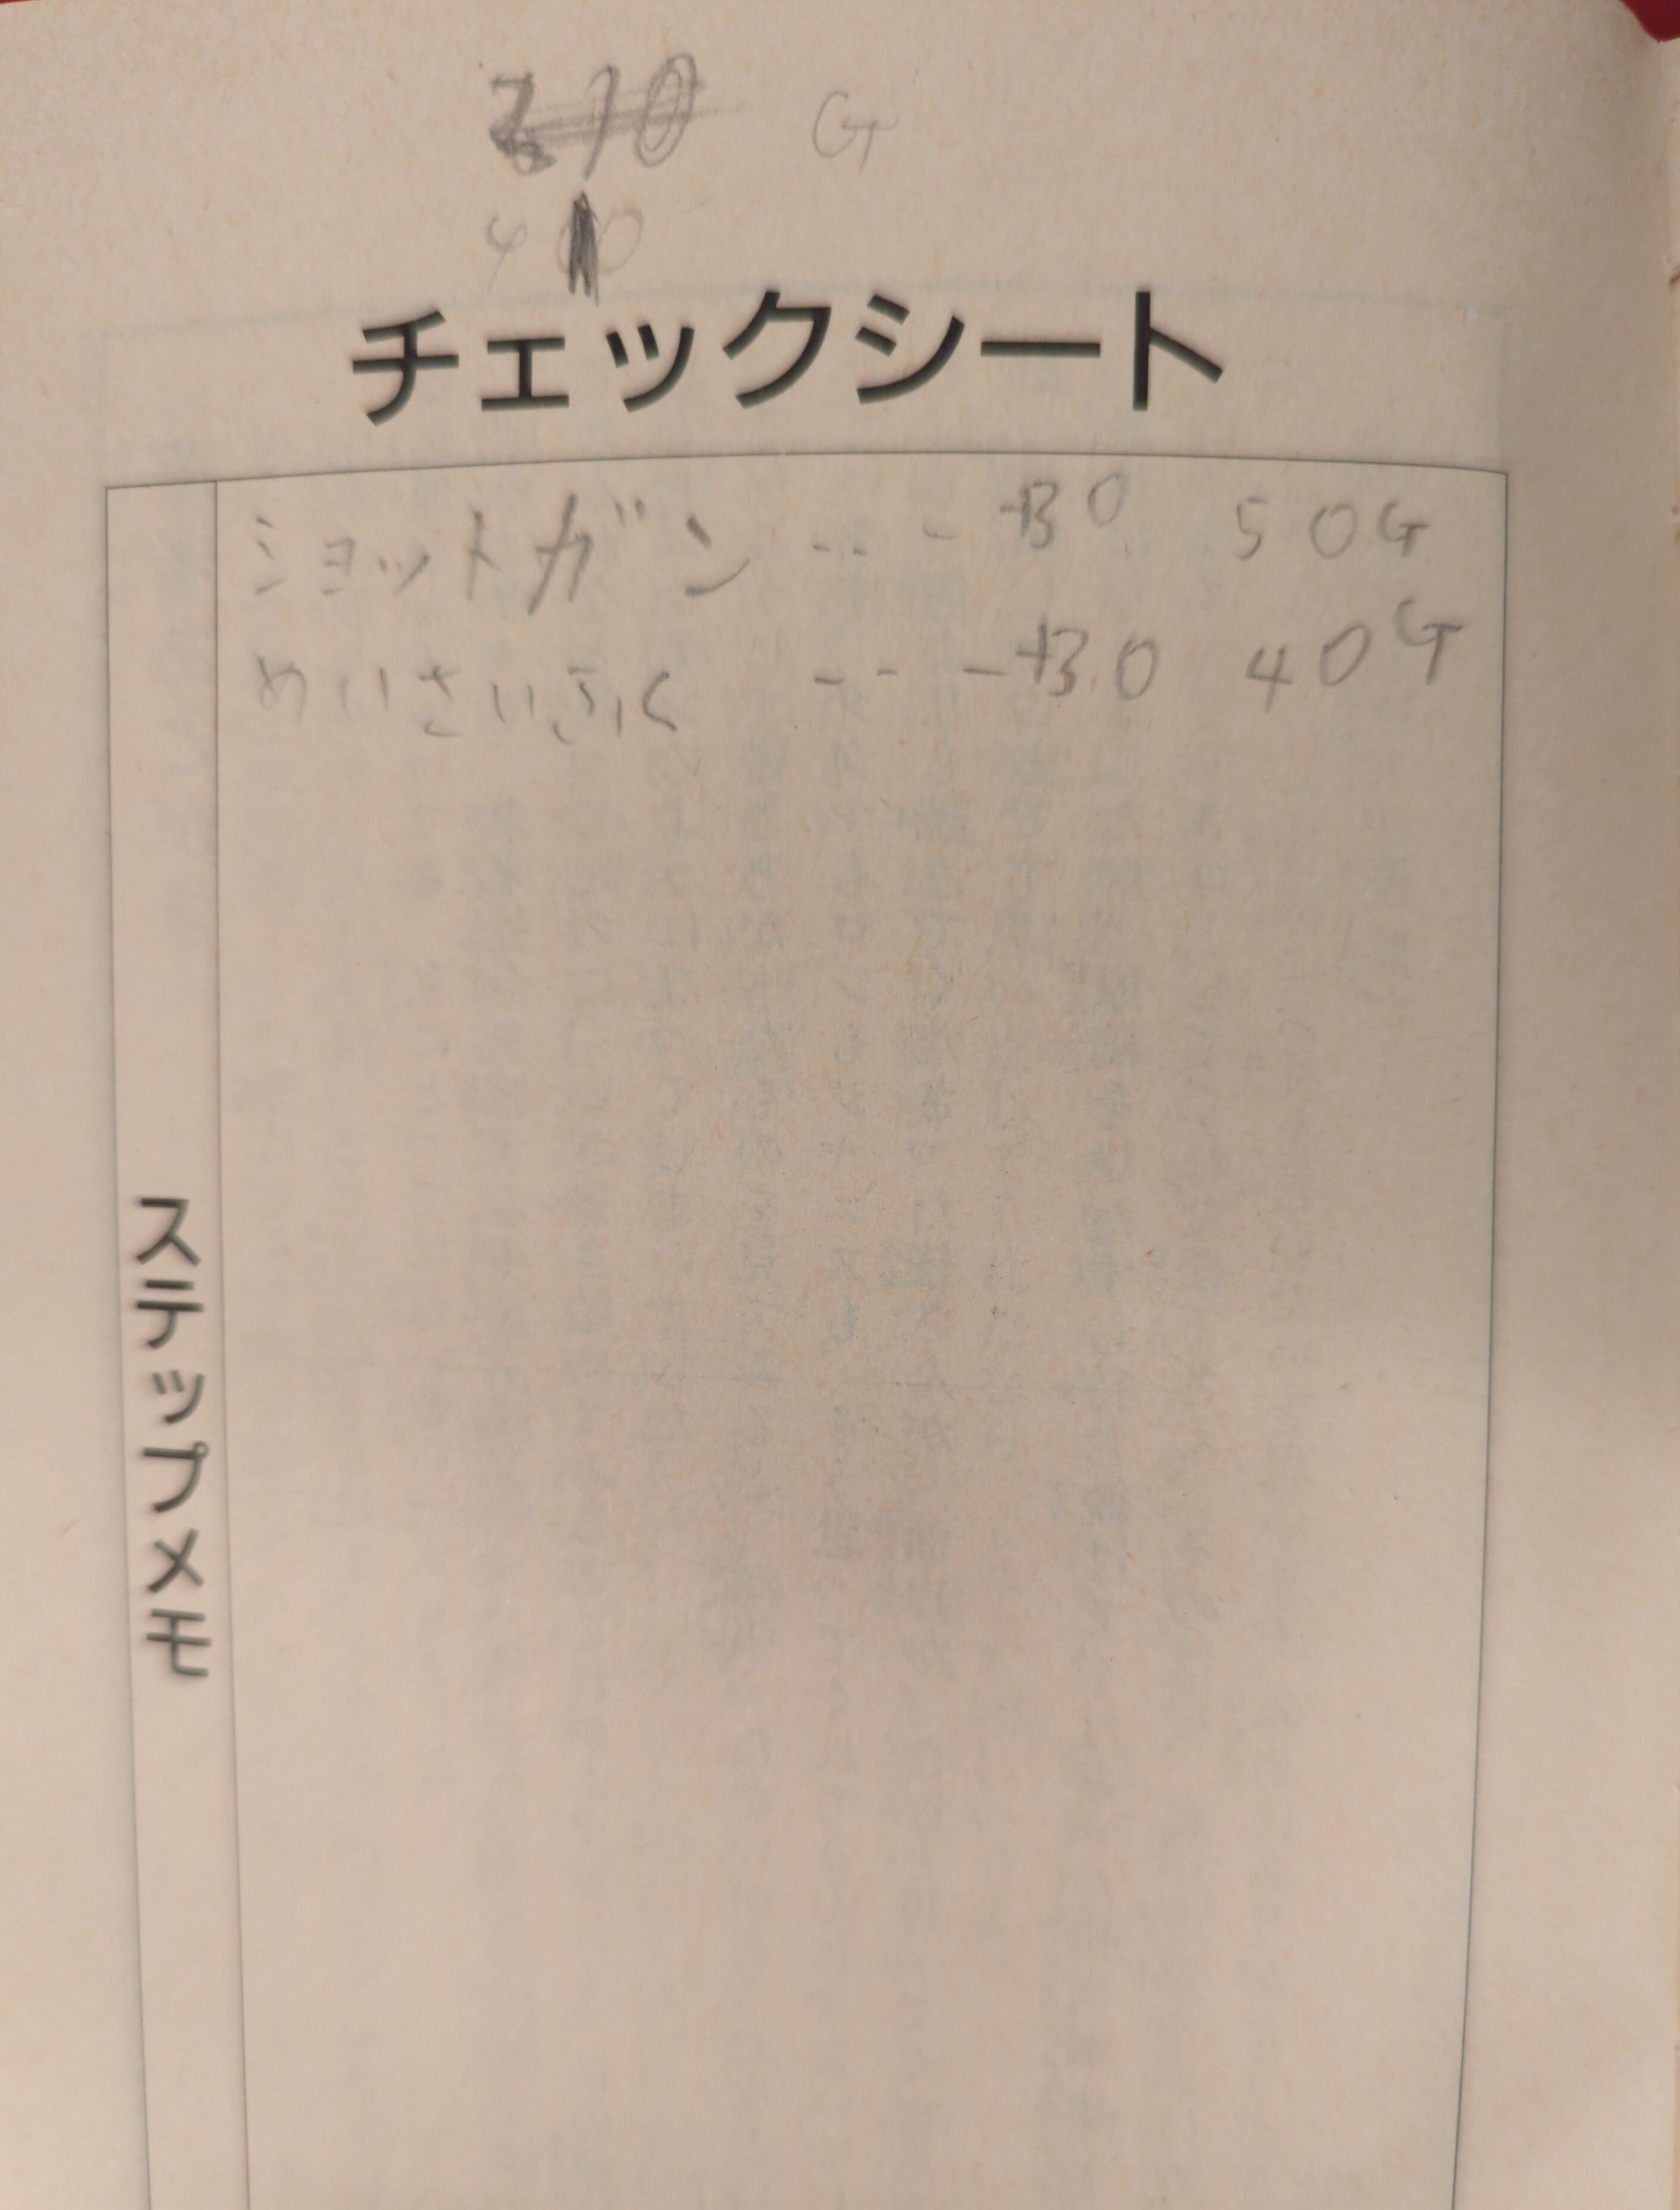 G
チェックシート
ショットガン --- +30 50G
めいさいふく --- +30 40G
ステップメモ